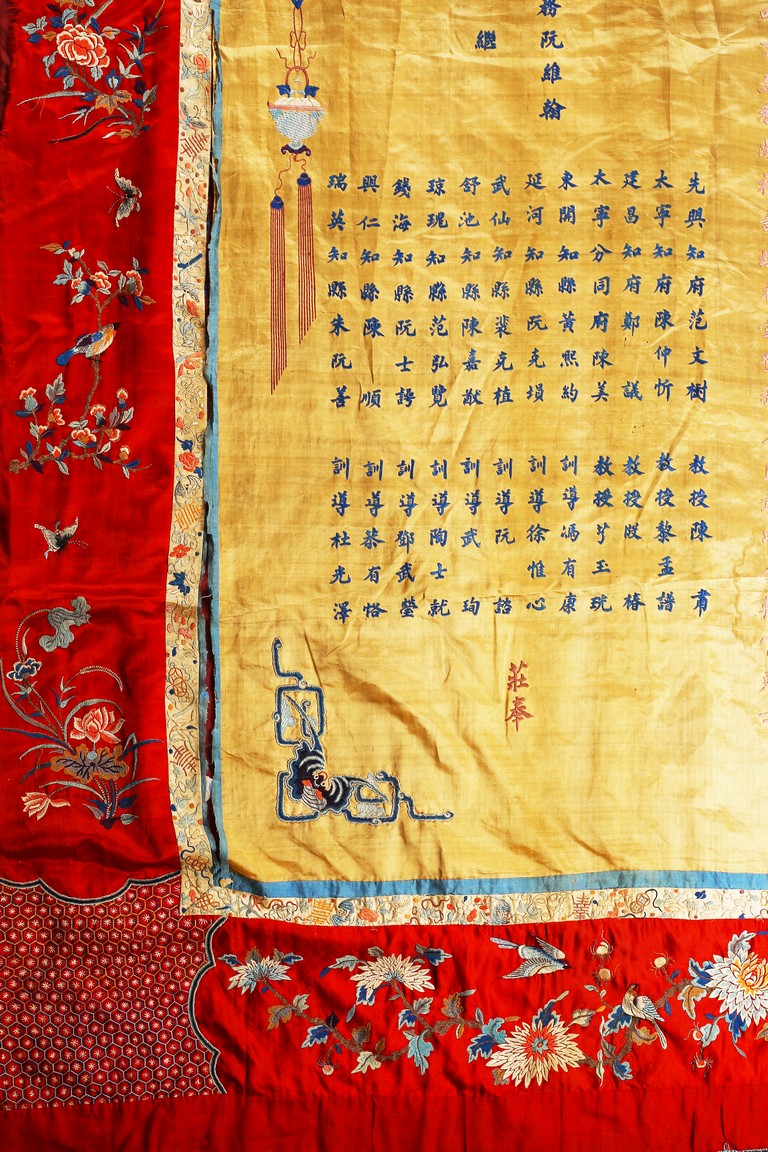 務阮維翰
繼
先興知府范文樹
太寧知府陳仲忻
建昌知府鄭議
太寧分同府陳美
東開知縣黃熙約
延河知縣阮克塤
武仙知縣裴克植
舒池知縣陳嘉猷
琼瑰知縣范弘覽
錢海知縣阮士諤
興仁知縣陳順
瑞英知縣朱阮善
教授陳肅
教授黎孟譜
教授段椿
教授玉珖
訓導馮有康
訓導徐惟心
訓導阮諮
訓導武珣
訓導陶士就
訓導鄧武瑩
訓導蔡有恪
訓導杜光澤
莊奉